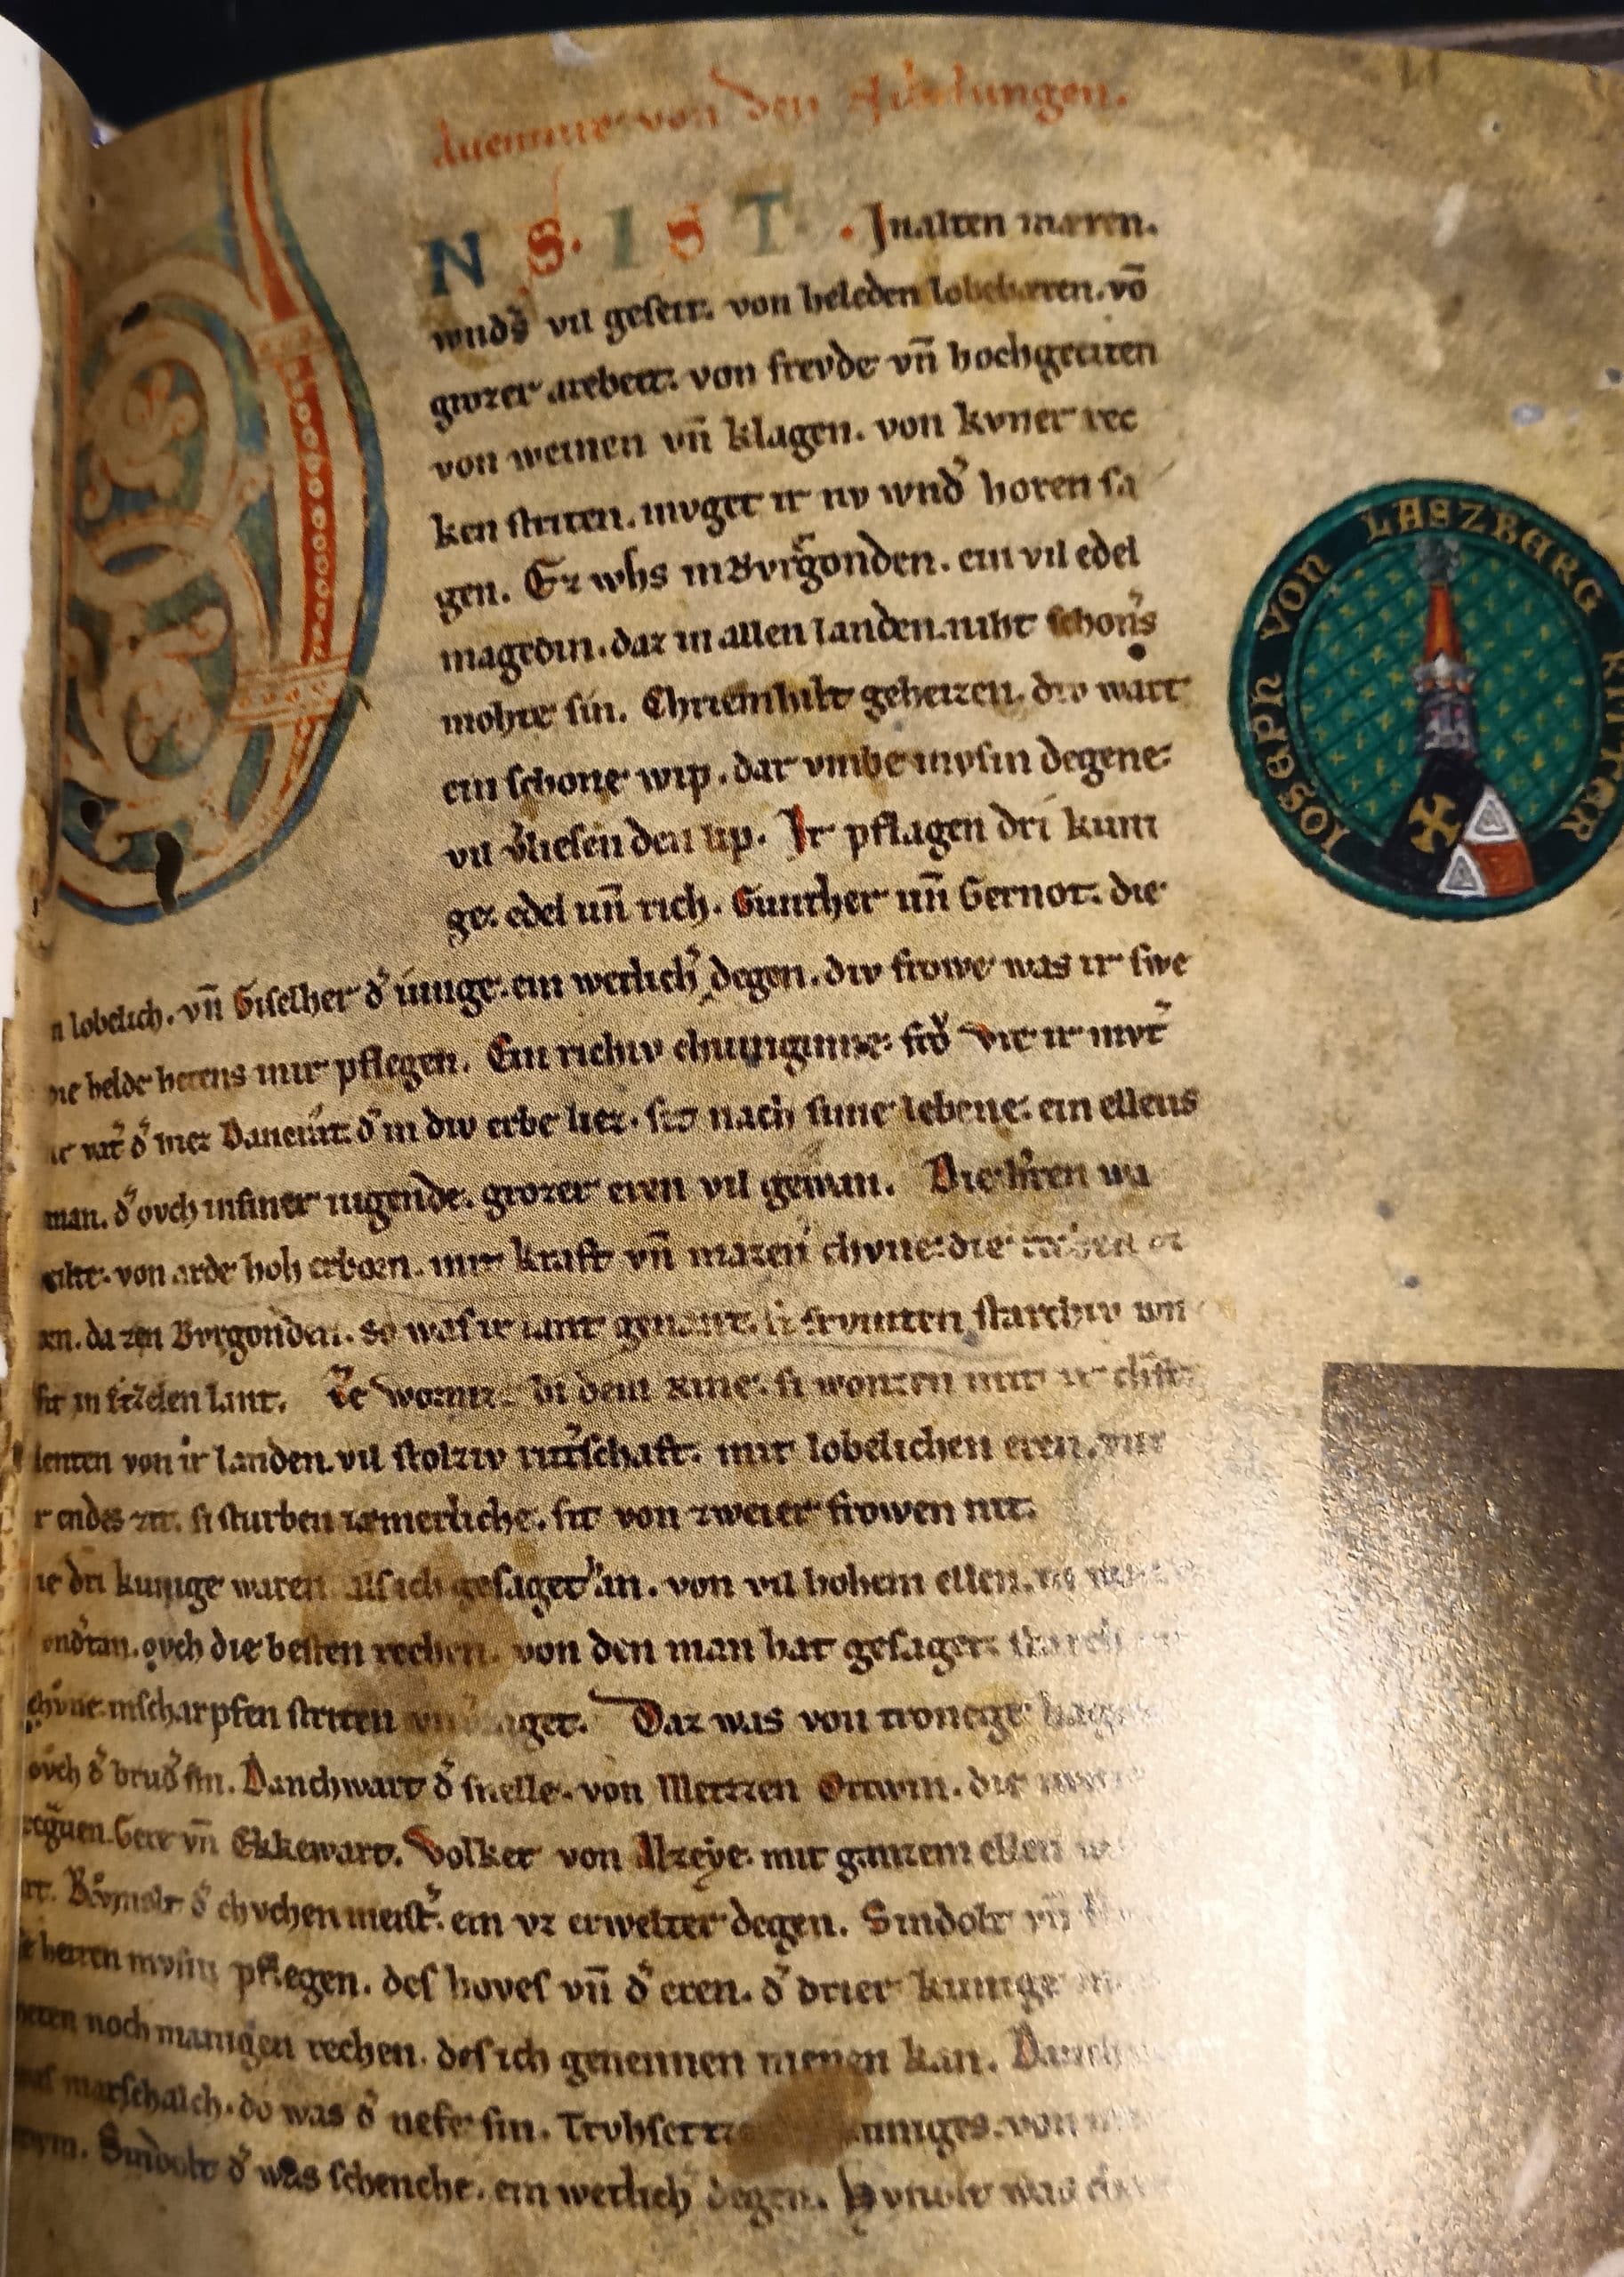 Auenture von den Nibelungen.
NS. IST. In alten mæren.
wnd͛s vil geseit. von heleden lobebæren. võ
grozer arebeit. von frevde vñ hochgeciten
von weinen vñ klagen. von kvner rec
ken striten. mvget ir nv wnd͛ horen sa
gen. Ez whs in Bvrgonden. ein vil edel
magedin. daz in allen landen. niht schon͛s
mohte sin. Chriemhilt geheizen. div wart
ein schone wip. dar vmbe mvsin degene
vil v͛liesen den lip. Ir pflagen dri kuni
ge. edel uñ rich. Gunther uñ Gernot. die
n lobelich. vñ Giselher d͛ iunge. ein werlich͛ degen. div frowe was ir swe
die helde hetens mir pflegen. Ein richiv chuniginne. frŏ Vte ir mvt͛
ir vat͛ d͛ hiez Dancrat. d͛ in div erbe liez. sit nach sime lebene. ein ellens
man. d͛ ovch in siner iugende. grozer eren vil gewan. Die h͛ren wa
milte. von arde hoh erborn. mit kraft vñ mazen chvne. die
en. da zen Bvrgonden. so was ir lant genant. si frvmten starchiv wn
sit in Etzelen lant. Ze Wormz bi dem Rine. si wonten mit ir chraft.
ienten von ir landen. vil stolziv rit͛schaft. mit lobelichen eren. vnz
r endes zit. si sturben iæmerliche. sit von zweier frowen nit.
ie dri kunige waren als ich gesaget han. von vil hohem ellen.
ond͛tan. ovch die besten rechen. von den man hat gesaget. starch
chvne. in scharpfen striten vnv͛zaget. Daz was von Tronege Hagene
ovch d͛ brud͛ sin. Danchwart d͛ snelle. von Mettzen Ortwin. die
regrauen. Gere vñ Ekkewart. Volker von Alzeye. mit ganzem ellen
rt. Rŏmolt d͛ chvchenmeist͛. ein vz erwelter degen. Sindolt vñ
e herren mvsin pflegen. des hoves vñ d͛ eren. d͛ drier kunige
heten noch manigen rechen. des ich genennen nienen kan. Danch
was marschalch. do was d͛ nefe sin. Trvhsetze kuniges. von
Ortwin. Sindolt d͛ was schenche. ein werlich͛ degen. Hvnolt was
IOSEPH VON LASZBERG RITTER